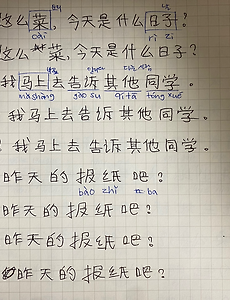 这么菜，今天是什么日子？
cài rì zi
这么菜，今天是什么日子？
我马上去告诉其他同学。
mǎ shàng gào su qí tā tóng xué
我马上去告诉其他同学。
我马上去告诉其他同学。
昨天的报纸吧？
bào zhǐ ba
昨天的报纸吧？
昨天的报纸吧？
昨天的报纸吧？